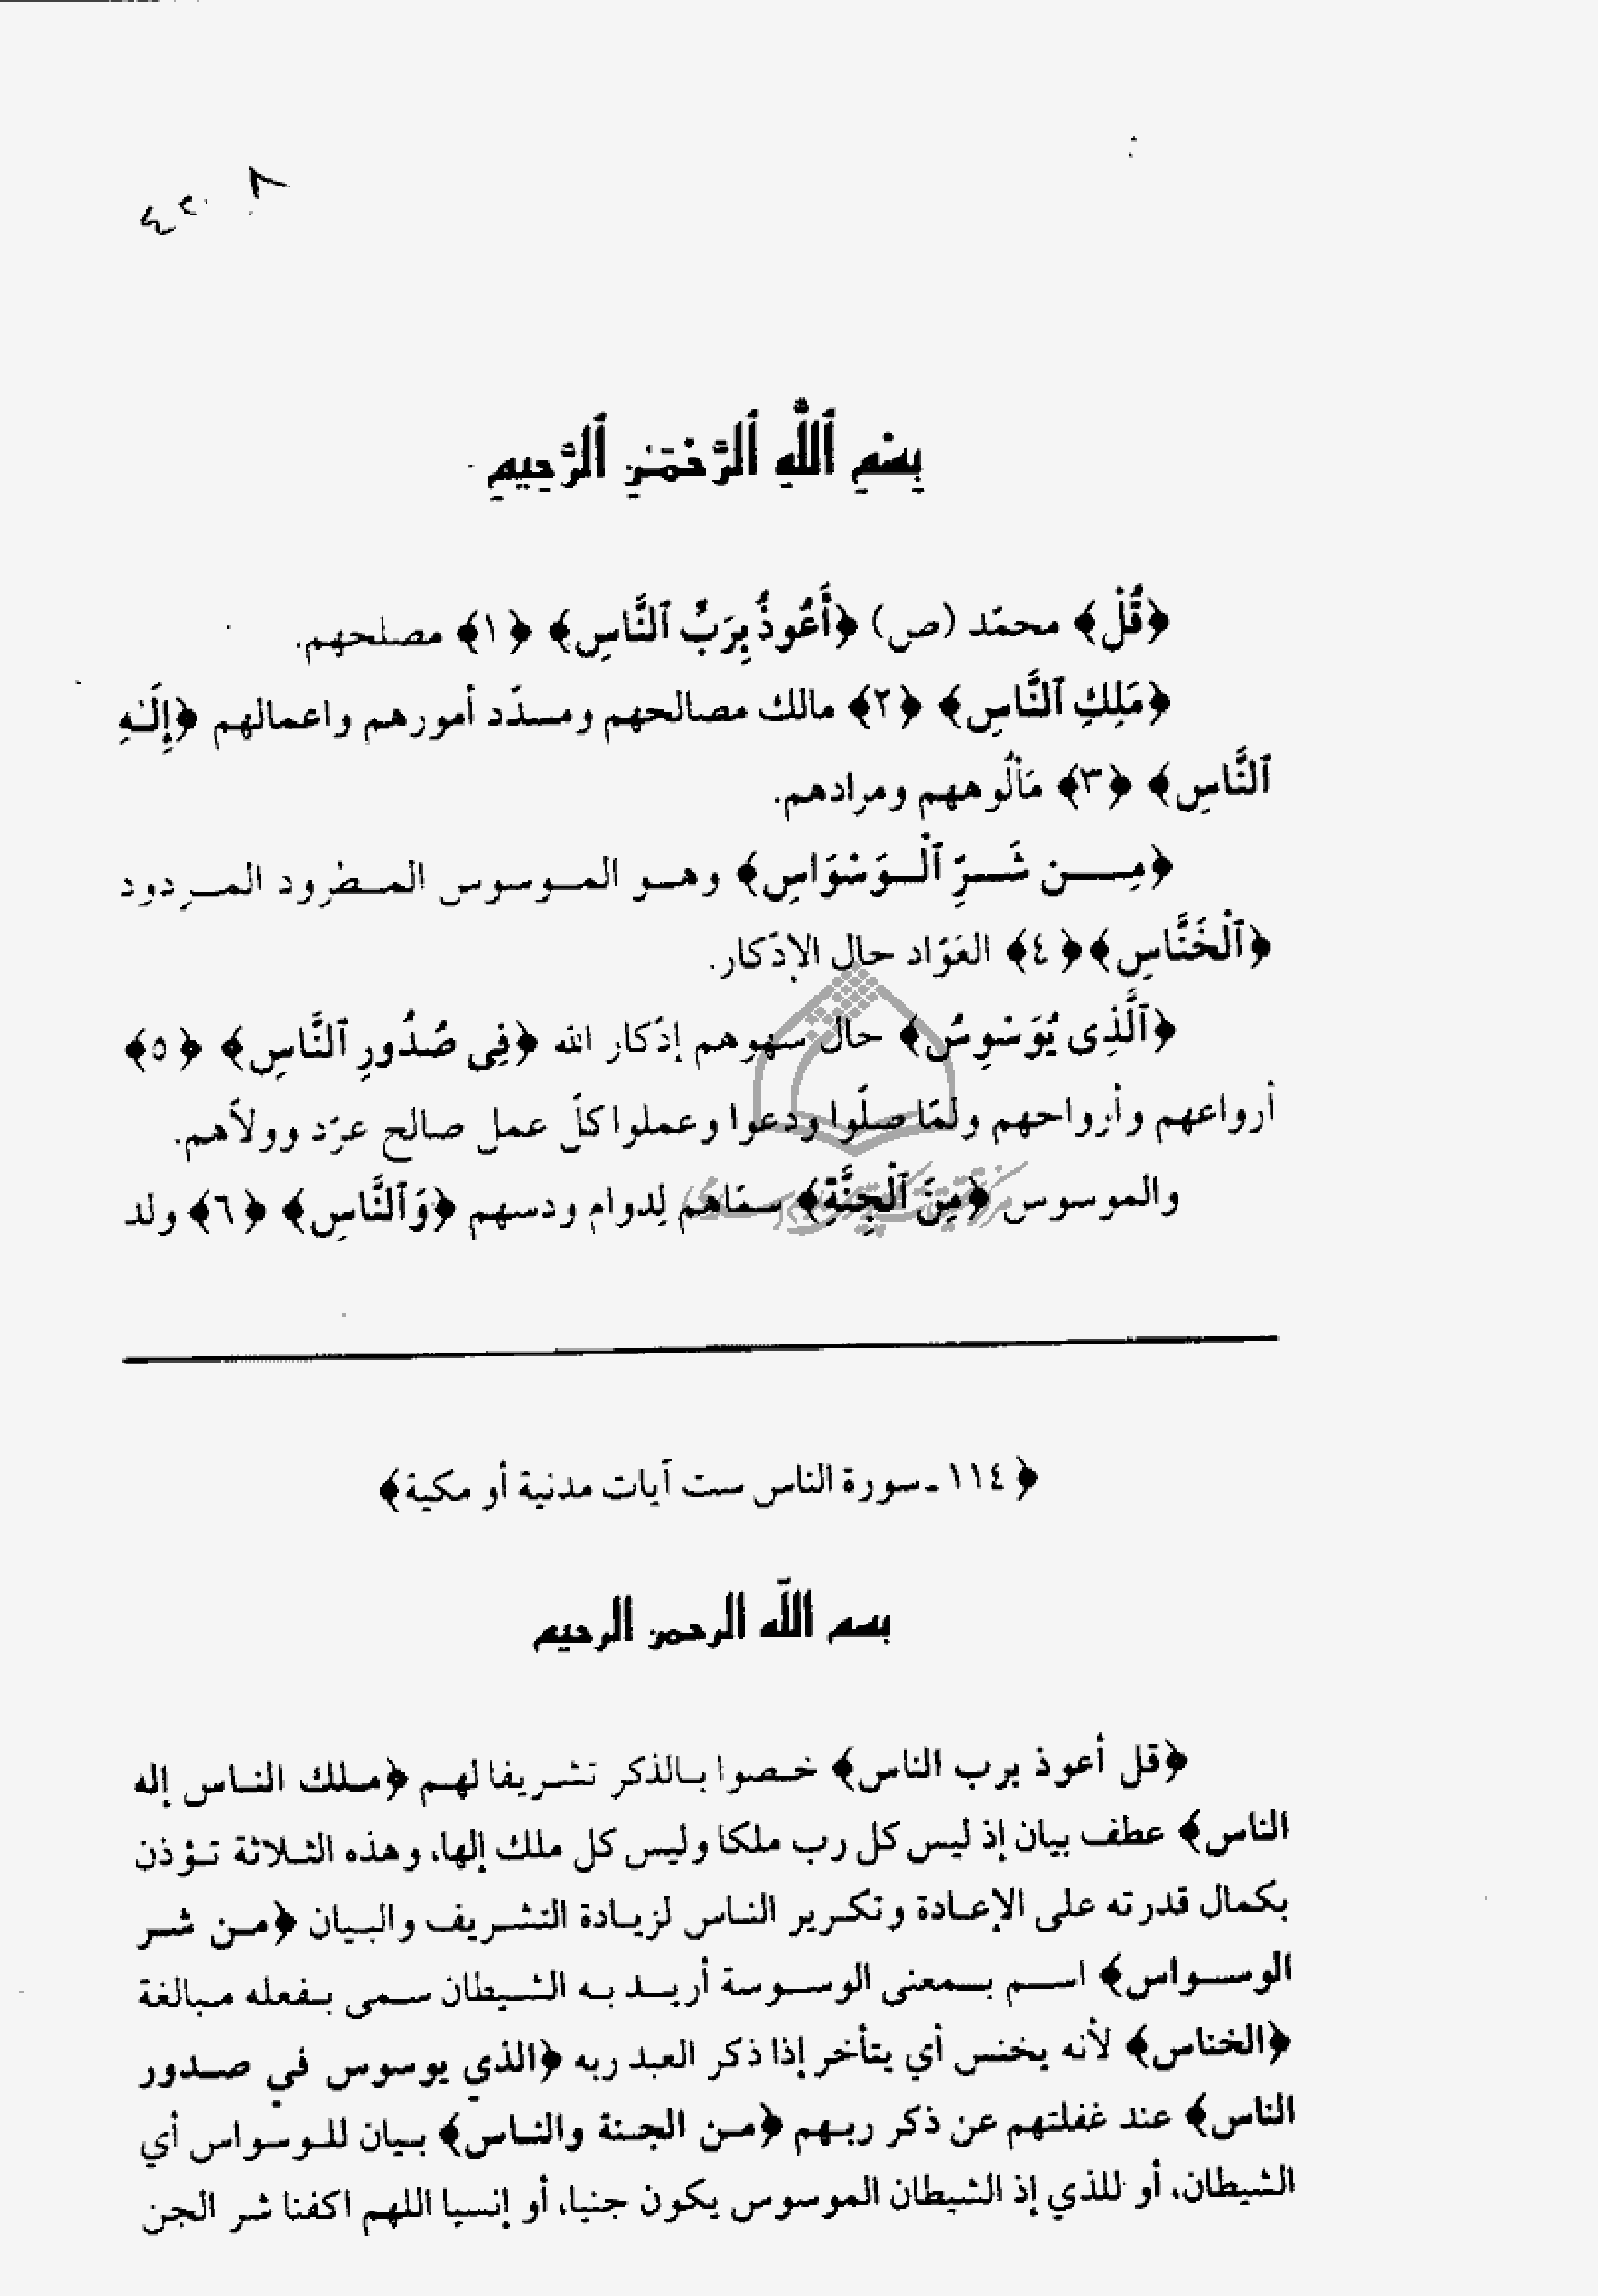 بِسْمِ ٱللَّهِ ٱلرَّحْمَـٰنِ ٱلرَّحِيمِ
﴿قُلْ﴾ محمّد (ص) ﴿أَعُوذُ بِرَبِّ ٱلنَّاسِ﴾ ﴿١﴾ مصلحهم.
﴿مَلِكِ ٱلنَّاسِ﴾ ﴿٢﴾ مالك مصالحهم ومسدّد أمورهم واعمالهم ﴿إِلَـٰهِ
ٱلنَّاسِ﴾ ﴿٣﴾ مَألُوههم ومرادهم.
﴿مِـن شَـرِّ ٱلْـوَسْوَاسِ﴾ وهـو المـوسوس المـطرود المـردود
﴿ٱلْخَنَّاسِ﴾﴿٤﴾ العَوّاد حال الإدّكار.
﴿ٱلَّذِى يُوَسْوِسُ﴾ حال سهوهم إدّكار الله ﴿فِى صُدُورِ ٱلنَّاسِ﴾ ﴿٥﴾
أرواعهم وأرواحهم ولمّا صلّوا ودعوا وعملوا كلّ عمل صالح عرّد وولاّهم.
والموسوس ﴿مِنَ ٱلْجِنَّةِ﴾ سمّاهم لِدوام ودسهم ﴿وَٱلنَّاسِ﴾ ﴿٦﴾ ولد
﴿١١٤ ـ سورة الناس ست آيات مدنية أو مكية﴾
بسم اللّه الرحمن الرحيم
﴿قل أعوذ برب الناس﴾ خـصوا بـالذكر تشـريفا لهـم ﴿مـلك النـاس إله
الناس﴾ عطف بيان إذ ليس كل رب ملكا وليس كل ملك إلها، وهذه الثـلاثة تـؤذن
بكمال قدرته على الإعـادة وتكـرير النـاس لزيـادة التشـريف والبـيان ﴿مـن شـر
الوسـواس﴾ اسـم بـمعنى الوسـوسة أريـد بـه الشـيطان سـمى بـفعله مـبالغة
﴿الخناس﴾ لأنه يخنس أي يتأخر إذا ذكر العبد ربه ﴿الذي يوسوس في صـدور
الناس﴾ عند غفلتهم عن ذكر ربـهم ﴿مـن الجـنة والنـاس﴾ بـيان للـوسواس أي
الشيطان، أو للذي إذ الشيطان الموسوس يكون جنيا، أو إنسيا اللهم اكفنا شر الجن